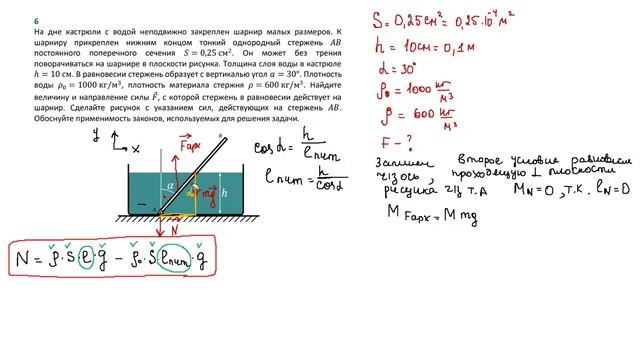 6
На дне кастрюли с водой неподвижно закреплен шарнир малых размеров. К
шарниру прикреплен нижним концом тонкий однородный стержень AB
постоянного поперечного сечения S = 0,25 см². Он может без трения
поворачиваться на шарнире в плоскости рисунка. Толщина слоя воды в кастрюле
h = 10 см. В равновесии стержень образует с вертикалью угол α = 30°. Плотность
воды ρ₀ = 1000 кг/м³, плотность материала стержня ρ = 600 кг/м³. Найдите
величину и направление силы F⃗, с которой стержень в равновесии действует на
шарнир. Сделайте рисунок с указанием сил, действующих на стержень AB.
Обоснуйте применимость законов, используемых для решения задачи.
y
x
Fарх
B
α
mg
h
A
N
cosα = h/lпчт
lпчт = h/cosα
N = ρ·S·l·g − ρ₀·S·lпчт·g
S = 0,25 см² = 0,25·10⁻⁴ м²
h = 10см = 0,1м
α = 30°
ρ₀ = 1000 кг/м³
ρ = 600 кг/м³
F − ?
Запишем второе условие равновесия
ч/з ось, проходящую ⊥ плоскости
рисунка ч/з т.А M_N = 0, т.к. l_N = 0
M Fарх = M mg